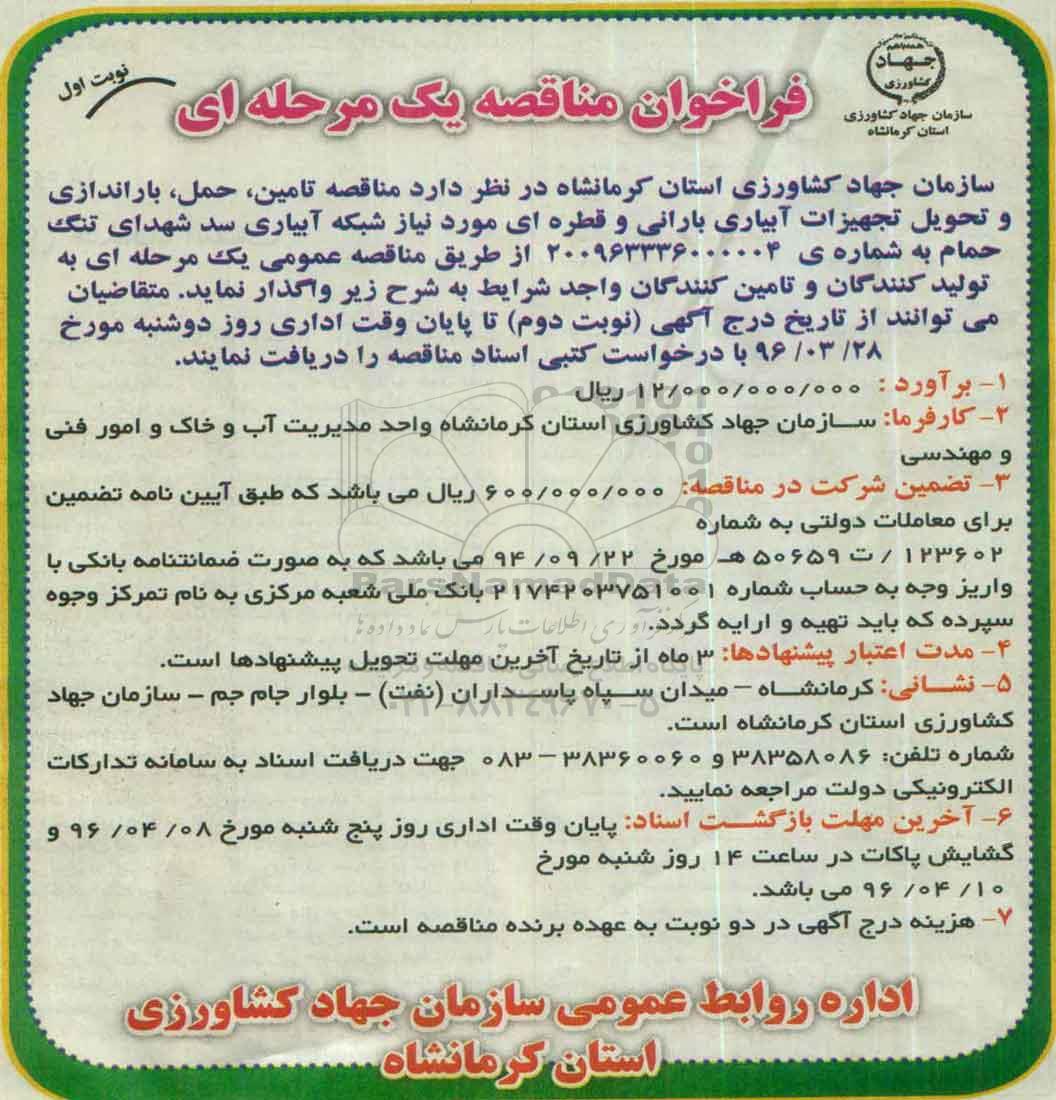 همه باهم
جهاد
کشاورزی
سازمان جهاد کشاورزی
استان کرمانشاه
نوبت اول
فراخوان مناقصه یک مرحله ای
سازمان جهاد کشاورزی استان کرمانشاه در نظر دارد مناقصه تامین، حمل، باراندازی
و تحویل تجهیزات آبیاری بارانی و قطره ای مورد نیاز شبکه آبیاری سد شهدای تنگ
حمام به شماره ی ۲۰۰۹۶۳۳۳۶۰۰۰۰۰۴ از طریق مناقصه عمومی یک مرحله ای به
تولید کنندگان و تامین کنندگان واجد شرایط به شرح زیر واگذار نماید. متقاضیان
می توانند از تاریخ درج آگهی (نوبت دوم) تا پایان وقت اداری روز دوشنبه مورخ
۲۸/ ۰۳/ ۹۶ با درخواست کتبی اسناد مناقصه را دریافت نمایند.
۱- برآورد : ۱۲/۰۰۰/۰۰۰/۰۰۰ ریال
۲- کارفرما: سازمان جهاد کشاورزی استان کرمانشاه واحد مدیریت آب و خاک و امور فنی
و مهندسی
۳- تضمین شرکت در مناقصه: ۶۰۰/۰۰۰/۰۰۰ ریال می باشد که طبق آیین نامه تضمین
برای معاملات دولتی به شماره
۱۲۳۶۰۲ / ت ۵۰۶۵۹ هـ مورخ ۲۲/ ۰۹/ ۹۴ می باشد که به صورت ضمانتنامه بانکی یا
واریز وجه به حساب شماره ۲۱۷۴۲۰۳۷۵۱۰۰۱ بانک ملی شعبه مرکزی به نام تمرکز وجوه
سپرده که باید تهیه و ارایه گردد.
۴- مدت اعتبار پیشنهادها: ۳ ماه از تاریخ آخرین مهلت تحویل پیشنهادها است.
۵- نشانی: کرمانشاه – میدان سپاه پاسداران (نفت) – بلوار جام جم – سازمان جهاد
کشاورزی استان کرمانشاه است.
شماره تلفن: ۳۸۳۵۸۰۸۶ و ۳۸۳۶۰۰۶۰ – ۰۸۳ جهت دریافت اسناد به سامانه تدارکات
الکترونیکی دولت مراجعه نمایید.
۶- آخرین مهلت بازگشت اسناد: پایان وقت اداری روز پنج شنبه مورخ ۰۸/ ۰۴/ ۹۶ و
گشایش پاکات در ساعت ۱۴ روز شنبه مورخ
۱۰/ ۰۴/ ۹۶ می باشد.
۷- هزینه درج آگهی در دو نوبت به عهده برنده مناقصه است.
اداره روابط عمومی سازمان جهاد کشاورزی
استان کرمانشاه
ParsNamadData
۰۲۱-۸۸۳۴۹۶۷۰-۵